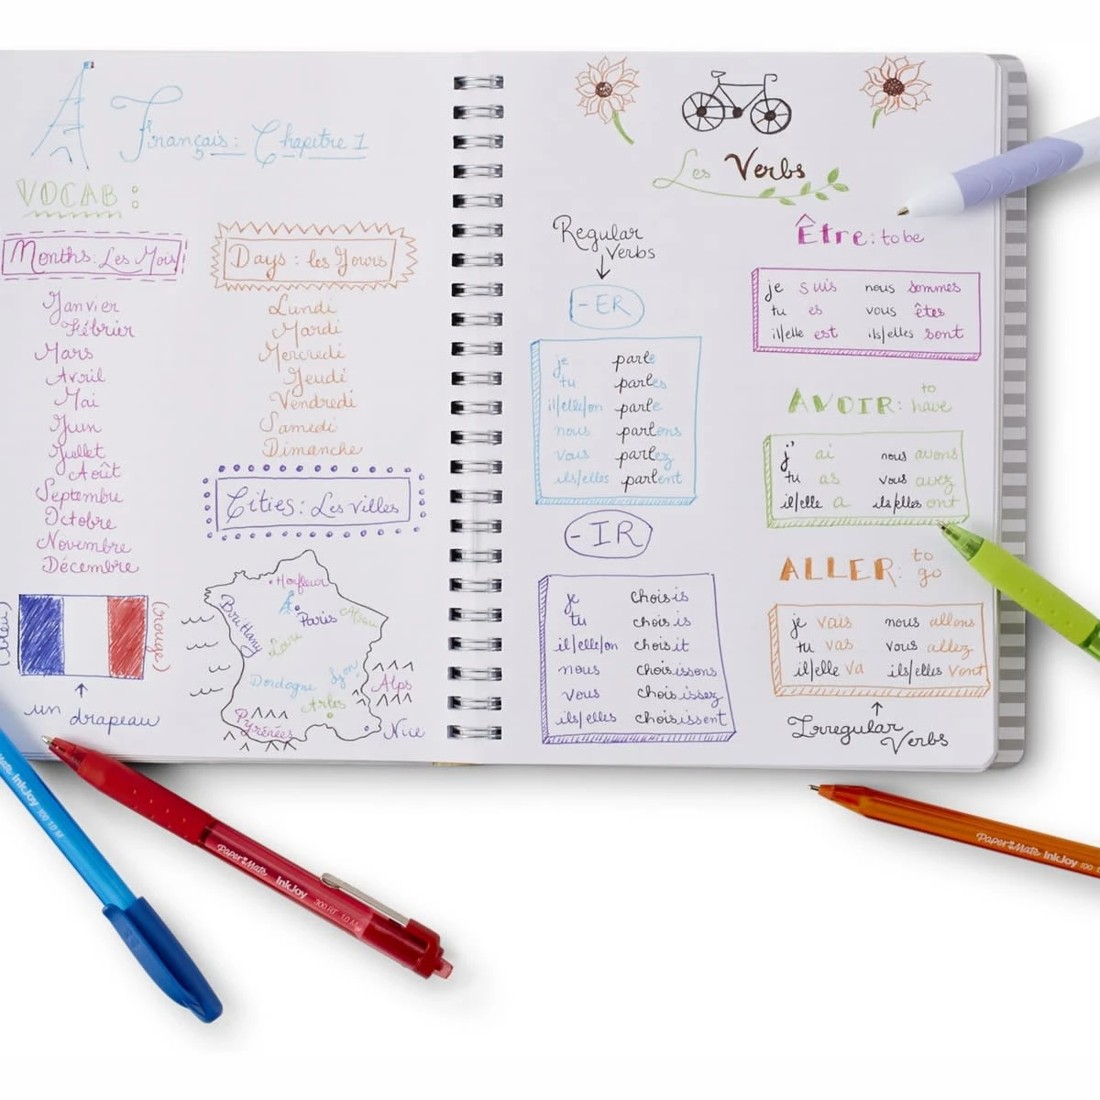 Français: Chapitre 1
VOCAB:
Months: Les Mois
Janvier
Fébrier
Mars
Avril
Mai
Juin
Juillet
Août
Septembre
Octobre
Novembre
Décembre
(bleu)
(rouge)
un drapeau
Days: les Jours
Lundi
Mardi
Mercredi
Jeudi
Vendredi
Samedi
Dimanche
Cities: Les villes
Honfleur
Paris
Brittany
Dordogne
Lyon
Alps
Arles
Pyrénées
Nice
Les Verbs
Regular
Verbs
-ER
je parle
tu parles
il/elle/on parle
nous parlons
vous parlez
ils/elles parlent
-IR
je choisis
tu choisis
il/elle/on choisit
nous choisissons
vous choisissez
ils/elles choisissent
Être: to be
je suis nous sommes
tu es vous êtes
il/elle est ils/elles sont
AVOIR: to have
j' ai nous avons
tu as vous avez
il/elle a ils/elles ont
ALLER: to go
je vais nous allons
tu vas vous allez
il/elle va ils/elles vont
Irregular
Verbs
InkJoy 100 1.0 M
Paper:Mate InkJoy 300 RT 1.0 M
Paper:Mate InkJoy 100